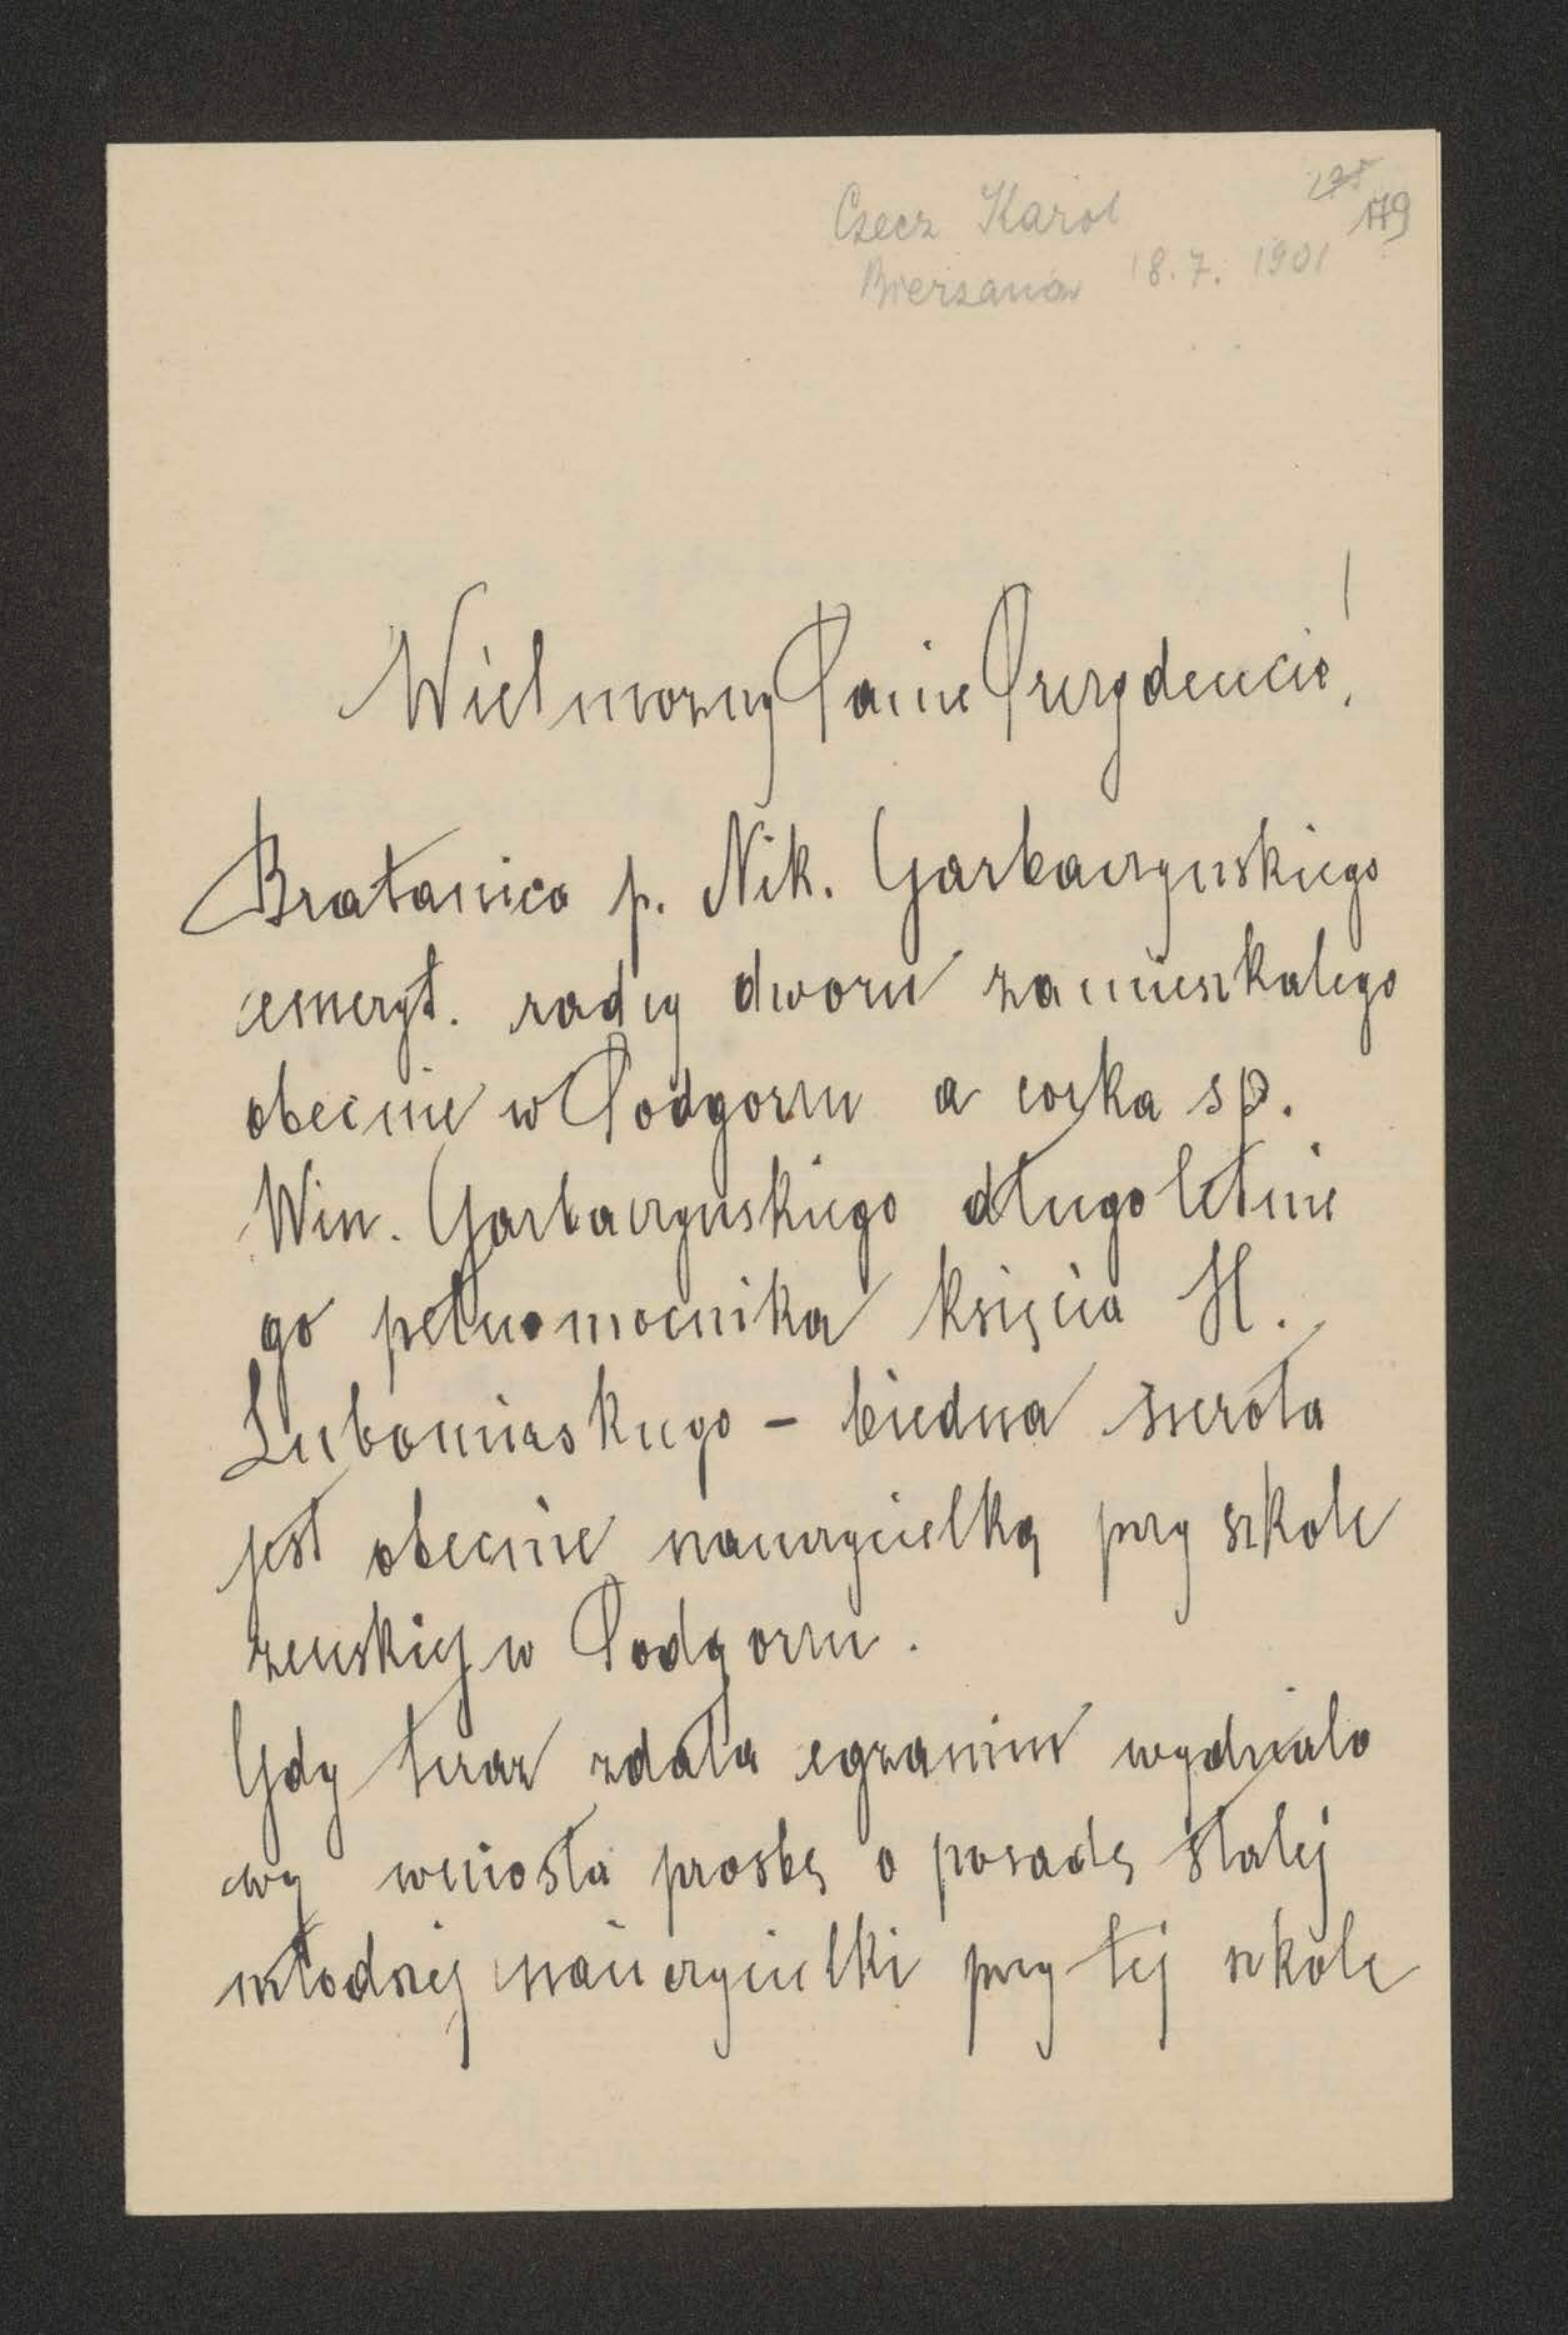 Czecz Karol 179
Bierzanów 18.7. 1901
Wielmozny Panie Prezydencie!
Bratanica p. Nik. Garbaczynskiego
emeryt. radcy dworu zamieszkalego
obecnie w Podgorzu a corka sp.
Win. Garbaczynskiego długoletnie
go pełnomocnika księcia H.
Lubomirskiego - biedna sierota
jest obecnie nauczycielką przy szkole
zenskiej w Podgorzu.
Gdy teraz zdała egzamin wydzialo
wy wniosła prosbę o posadę stalej
młodszej nauczycielki przy tej szkole